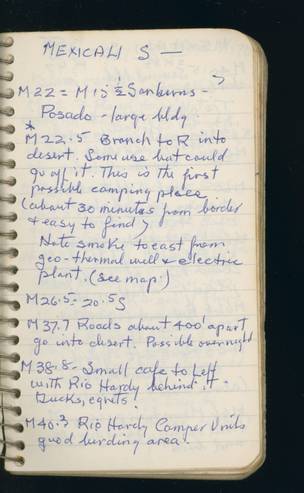 MEXICALI S —
M22 = M15 ½ Sanburns -
Posado - large bldg
*
M22.5 Branch to R into
desert. Some use but could
go off it. This is the first
possible camping place
(about 30 minutes from border
& easy to find)
Note smoke to east from
geo-thermal well & electric
plant. (see map)
M26.5 - 20.5 S
M37.7 Roads about 400' apart
go into desert. Possible overnight
M38.8 - Small cafe to Left
with Rio Hardy behind it -
Ducks, egrets.
M40.3 Rio Hardy Camper Units
good birding area.